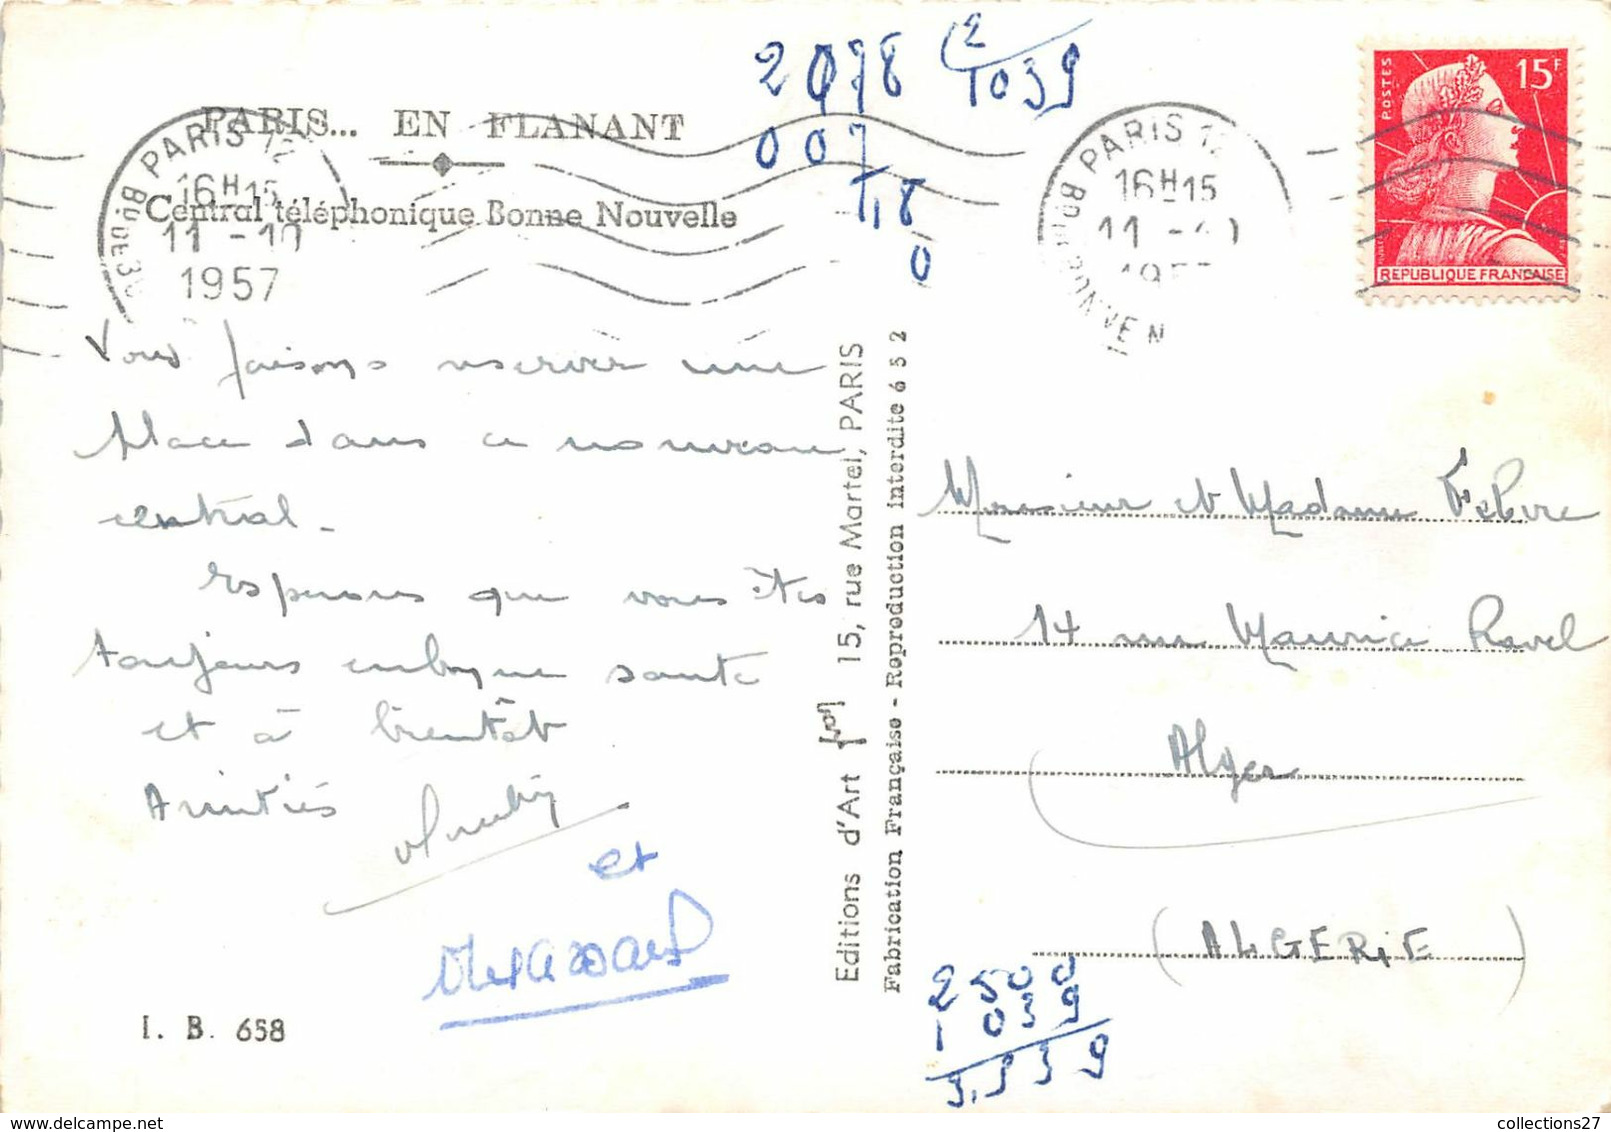 PARIS... EN FLANANT
Central téléphonique Bonne Nouvelle
PARIS 12
16H15
11 -10
1957
2078 2
1039
007
18
0
PARIS 12
16H15
11 -10
POSTES
15F
REPUBLIQUE FRANCAISE
Vous faisons réserver une
place dans ce nouveau
central -
Espérons que vous êtes
toujours en bonne santé
et à bientôt
Amitiés
et
I. B. 658
Editions d'Art 15, rue Martel, PARIS
Fabrication Française - Reproduction interdite 652
Monsieur et Madame Febvre
14 rue Maurice Ravel
Alger
(ALGERIE)
2500
1039
3.939
collections27